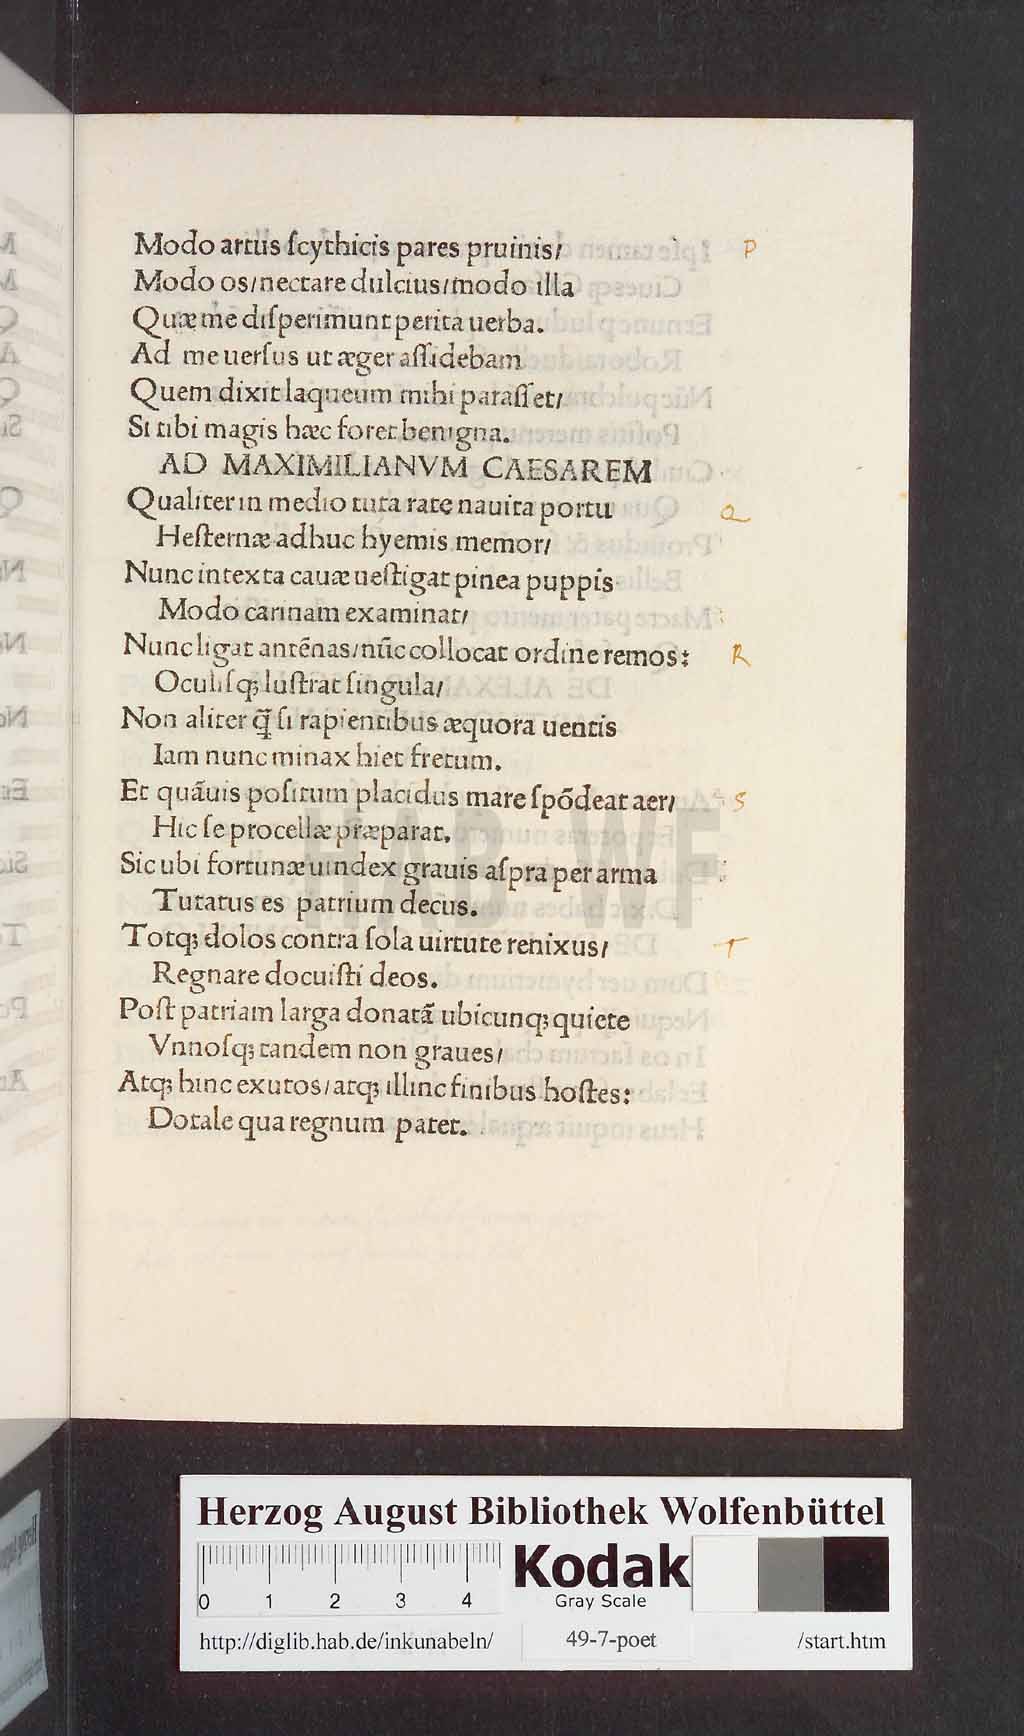 Modo artus ſcythicis pares pruinis/
P
Modo os/nectare dulcius/modo illa
Quæ me diſperimunt perita uerba.
Ad me uerſus ut æger aſſidebam
Quem dixit laqueum mihi paraſſet/
Si tibi magis hæc foret benigna.
AD MAXIMILIANVM CAESAREM
Qualiter in medio tuta rate nauita portu
Q
Heſternæ adhuc hyemis memor/
Nunc intexta cauæ ueſtigat pinea puppis
Modo carinam examinat/
Nunc ligat antēnas/nūc collocat ordine remos:
R
Oculiſqꝫ luſtrat ſingula/
Non aliter q̄ ſi rapientibus æquora uentis
Iam nunc minax hiet fretum.
Et quāuis poſitum placidus mare ſpōdeat aer/
S
Hic ſe procellæ præparat.
Sic ubi fortunæ uindex grauis aſpra per arma
Tutatus es patrium decus.
Totqꝫ dolos contra ſola uirtute renixus/
T
Regnare docuiſti deos.
Poſt patriam larga donatā ubicunqꝫ quiete
Vnnoſqꝫ tandem non graues/
Atqꝫ hinc exutos/atqꝫ illinc finibus hoſtes:
Dotale qua regnum patet.
HAB-WF
Herzog August Bibliothek Wolfenbüttel
0 1 2 3 4
Kodak
Gray Scale
http://diglib.hab.de/inkunabeln/ 49-7-poet /start.htm